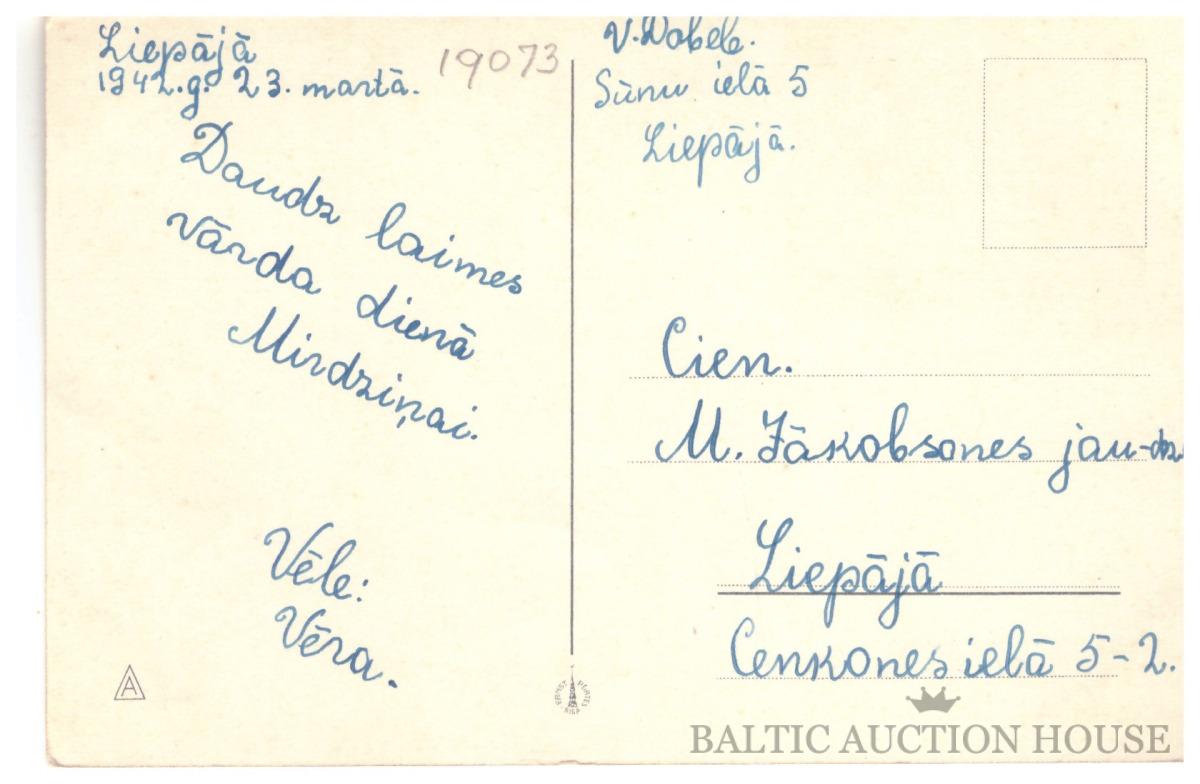 Liepājā
1942.g. 23. martā.
19073
Daudz laimes
vārda dienā
Mirdziņai.
Vēle:
Vēra.
A
V. Dobele.
Sūnu ielā 5
Liepājā.
Cien.
M. Jākobsones jau-dz
Liepājā
Cenkones ielā 5-2.
ERNST PLATES
RIGA
BALTIC AUCTION HOUSE